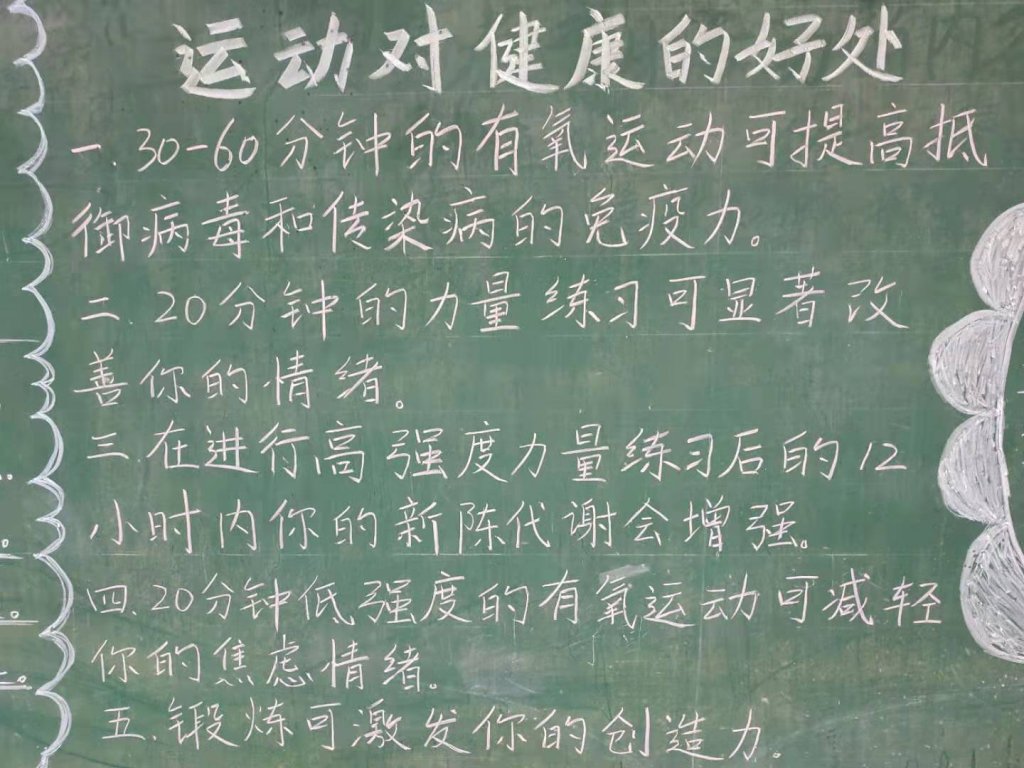 运动对健康的好处
一.30-60分钟的有氧运动可提高抵
御病毒和传染病的免疫力。
二.20分钟的力量练习可显著改
善你的情绪。
三.在进行高强度力量练习后的12
小时内你的新陈代谢会增强。
四.20分钟低强度的有氧运动可减轻
你的焦虑情绪。
五.锻炼可激发你的创造力.